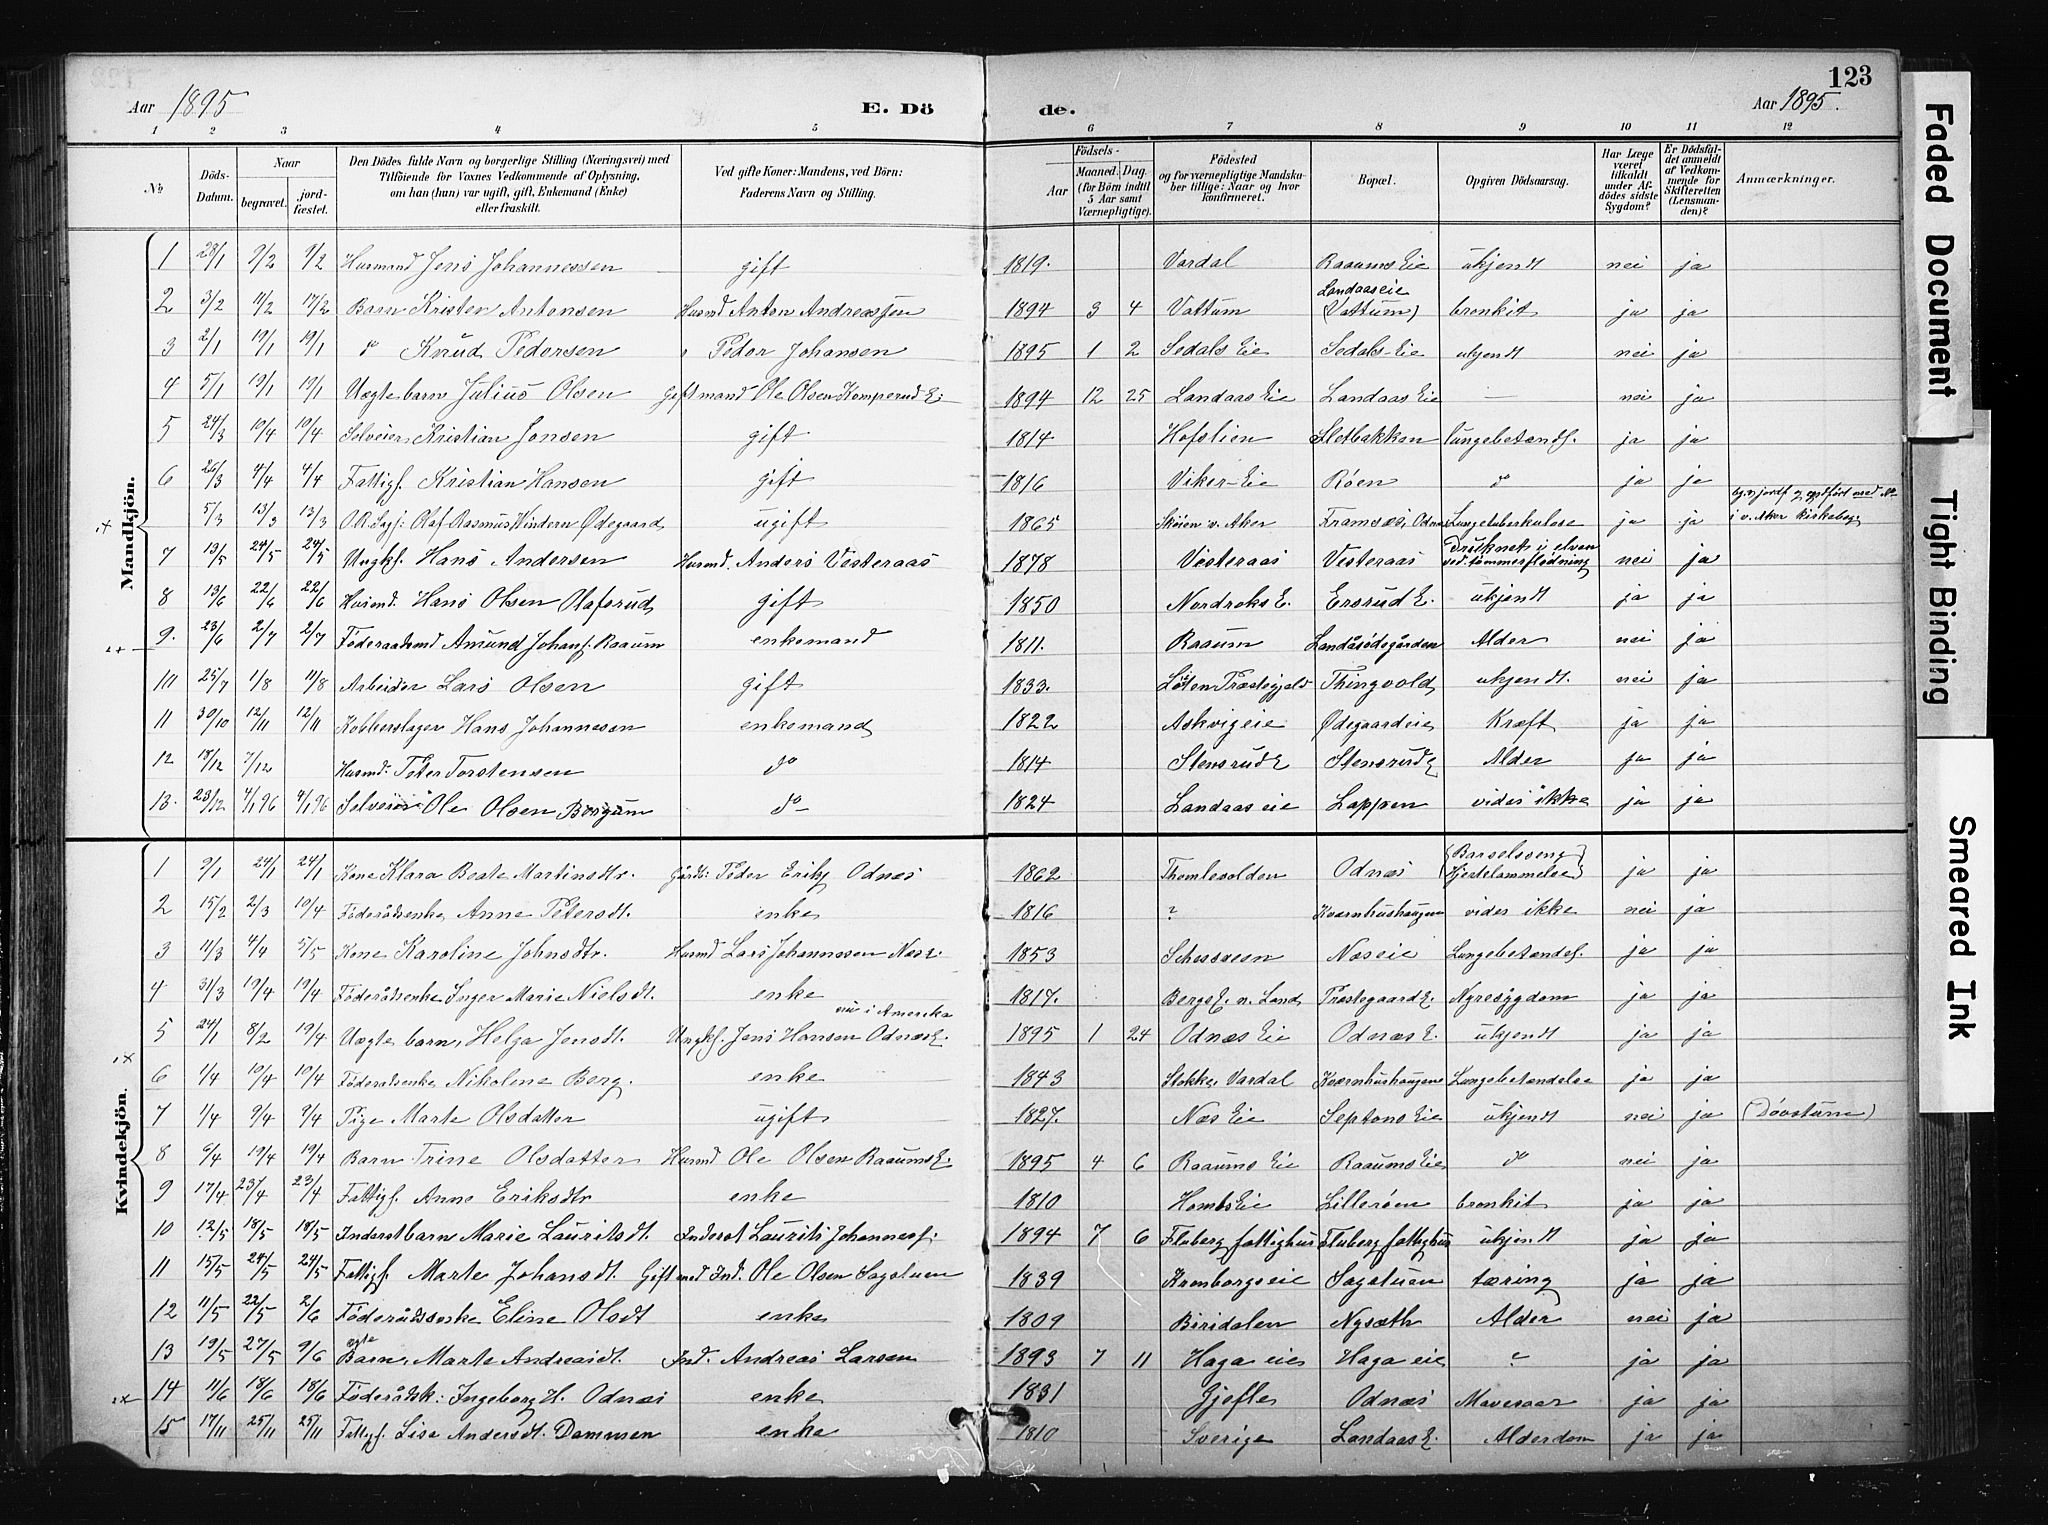 123
Aar 1895 E. Dö de. Aar 1895.
1 2 3 4 5 6 7 8 9 10 11 12
No Döds-Datum. Naar begravet. jord-fæstet. Den Dödes fulde Navn og borgerlige Stilling (Næringsvei) med Tilföiende for Voxnes Vedkommende af Oplysning, om han (hun) var ugift, gift, Enkemand (Enke) eller fraskilt. Ved gifte Koner: Mandens, ved Börn: Faderens Navn og Stilling. Födsels- Aar Maaned. Dag. (for Börn indtil 5 Aar samt Værnepligtige). Födested og for værnepligtige Mandskaber tillige: Naar og hvor konfirmeret. Bopæl. Opgiven Dödsaarsag. Har Læge været tilkaldt under Afdödes sidste Sygdom? Er Dödsfaldet anmeldt af Vedkommende for Skifteretten (Lensmanden)? Anmærkninger.
Mandkjön.
1 28/1 9/2 9/2 Husmand Jens Johannessen gift 1819. Vardal Raaums Eie ukjendt nei ja
2 3/2 11/2 17/2 Barn Kristen Antonsen Husmd Anton Andreassen 1894 3 4 Vattum Landaaseie (Vattum) bronkit ja ja
3 2/1 19/1 19/1 do Knud Pedersen " Peder Johansen 1895 1 2 Sedals Eie Sedals Eie ukjendt nei ja
4 5/1 19/1 19/1 Uægte barn Julius Olsen Gift mand Ole Olsen Komperud E. 1894 12 25 Landaas Eie Landaas Eie — nei ja
5 24/3 10/4 10/4 Selveier Kristian Jonsen gift 1814 Hofslien Sletbakken lungebetændf. ja ja
6 26/3 4/4 4/4 Fattigf. Kristian Hansen gift 1816 Viker-Eie Röen do ja ja
5/3 13/3 13/3 O.R.Sagf: Olaf Rasmus Kindern Ødegaard ugift 1865 Skøien v. Aker Framnes, Odnæs Lungetuberkulose ja ja
7 13/5 24/5 24/5 Ungkf. Hans Andersen Husmd. Anders Vesteraas 1878 Vesteraas Vesteraas Druknet i elven ved tømmerflødning nei ja
8 13/6 22/6 22/6 Husmd. Hans Olsen Olafsrud gift 1850 Nordroks E. Ersrud E. ukjendt ja ja
9. 23/6 2/7 2/7 Föderaadsmd Amund Johans. Raaum enkemand 1811. Raaum Landåsødegården Alder nei ja
10 25/7 1/8 11/8 Arbeider Lars Olsen gift 1833. Løten Præstegjeld Thingvold ukjendt. nei ja
11 30/10 12/11 12/11 Kobberslager Hans Johannesen enkemand 1822 Askvigeie Ødegaardeie Kræft ja ja
12 18/12 7/12 Husmd: Peter Torstensen do 1814 Stensrud E Stensrud E Alder ja ja
13. 23/12 4/1 96 4/1 96 Selveier Ole Olsen Borgum do 1824 Landaas eie Lappen vides ikke ja ja
Kvindekjön.
1 9/1 24/1 24/1 Kone Klara Beate Martinsdtr. Gårdb: Peder Eriks. Odnæs 1862 Thomlevolden Odnæs (Barselseng Hjertelammelse) ja ja
2 15/2 2/3 19/4 Föderådsenke Anne Petersdt. enke 1816 ? Kværnhushaugen vides ikke nei ja
3 11/3 4/4 5/5 Kone Karoline Johnsdtr. Husmd Lars Johannessen Næs E. 1853 Næseie Lungebetændels. ja ja
4 31/3 19/4 19/4 Föderådsenke Inger Marie Nielsdt. enke 1817. Bergs E. n. Land Præstegaard E. Nyresygdom ja ja
5 24/1 8/2 19/4 Uægte barn, Helga Jensdt. Ungkf. Jens Hansen Odnæs E. nu i Amerika 1895 1 24 Odnæs Eie Odnæs E. ukjendt ja ja
6 1/4 19/4 19/4 Föderadsenke Nikoline Berg. enke 1843 Stokke, Vardal Kværnhushaugene Lungebetændelse ja ja
7 1/4 9/4 9/4 Pige Marte Olsdatter ugift 1827. Næs Eie Septons Eie ukjendt nei ja (Døvstum)
8 6/4 19/4 19/4 Barn Trine Olsdatter Husmd Ole Olsen Raaums E. 1895 4 6 Raaums Eie Raaums Eie do nei ja
9 17/4 23/4 23/4 Fattigf. Anne Eriksdtr enke 1810 Hombs Eie Lillerøen bronkit ja ja
10 12/5 18/5 18/5 Inderstbarn Marie Lauritsdt. Inderst Laurits Johannesf. 1894 7 6 Fluberg fattighus Fluberg fattighus ukjendt ja ja
11 15/5 24/5 24/5 Fattigf. Marte Johansdt. Gift md Ind. Ole Olsen Sagstuen 1839 Kronborgseie Sagstuen tæring ja ja
12 11/5 22/5 2/6 Föderådsenke Eline Olsdt enke 1809 Biridalen Nysæth Alder nei ja
13 19/5 27/5 9/6 ægte Barn, Marte Andreasdt. Ind. Andreas Larsen 1893 7 11 Haga eie Haga eie ? ja ja
14 11/6 18/6 18/6 Föderådsk: Ingeborg H. Odnæs enke 1831 Gjefle Odnæs Mavesaar ja ja
15 17/11 25/11 25/11 Fattigf. Lise Andersdt. Dammen enke 1810 Sverige Landaas E. Alderdom ja ja
Faded Document
Tight Binding
Smeared Ink